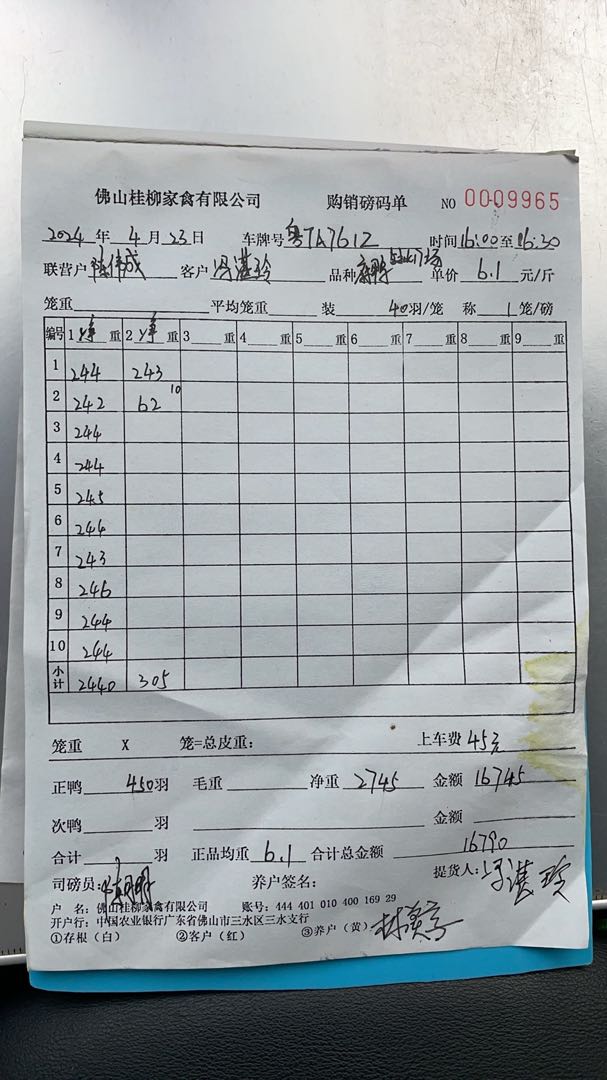 佛山桂柳家禽有限公司 购销磅码单 NO 0009965
2024 年 4 月 23 日 车牌号 粤TA761Z 时间 16:00 至 16:30
联营户 伟成 客户 湛玲 品种 单价 6.1 元/斤
笼重 平均笼重 装 40 羽/笼 称 1 笼/磅
编号 1 净 重 2 净 重 3 重 4 重 5 重 6 重 7 重 8 重 9 重
1 244 243
2 242 62 10
3 244
4 244
5 245
6 244
7 243
8 246
9 244
10 244
小计 2440 305
笼重 X 笼=总皮重: 上车费 45元
正鸭 450 羽 毛重 净重 2745 金额 16745
次鸭 羽 金额
合计 羽 正品均重 6.1 合计总金额 16790
司磅员: 养户签名: 提货人: 湛玲
户 名: 佛山桂柳家禽有限公司 账号: 444 401 010 400 169 29
开户行: 中国农业银行广东省佛山市三水区三水支行
①存根（白） ②客户（红） ③养户（黄）